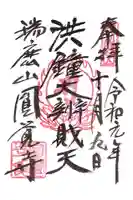 奉拝
令和元年
十一月九日
洪鐘大辯財天
瑞鹿山圓覚寺